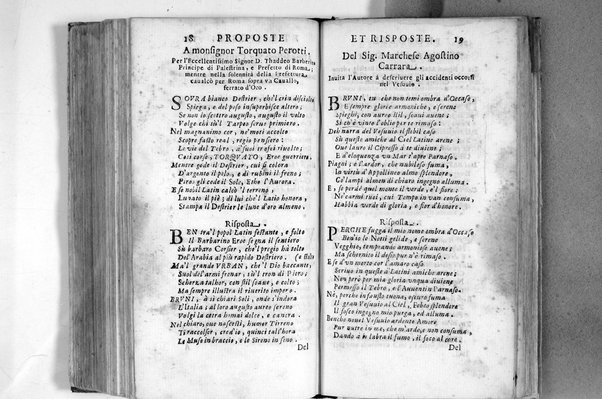 18 PROPOSTE
A monsignor Torquato Perotti.
Per l'Eccellentissimo Signor D. Thaddeo Barberino
Principe di Palestrina, e Prefetto di Roma,
mentre nella solennità della Prefettura,
cavalcò per Roma sopra vn Cauallo,
ferrato d'Oro.
SOVRA bianco Destrier, che'l crin disciolto
Spiega, e del peso insuperbisce altero:
Se non lo scettro augusto, augusto il volto
Volge chi in'l Tarpeo serue primiero.
Nel magnanimo cor, ne' moti accolto
Scopre fasto real, regio pensiero:
Le vie del Tebro, à suoi trofei riuolto,
Cui corse, TORQVATO, Eroe guerriero.
Mentre gode il Destrier, cui si colora
D'argento il pelo, e di rubini il freno;
Piroi gli cede il Sole, Etho l'Aurora.
E se nobil Latin calcò 'l terreno;
Lunato il piè; di lui che'l Latio honora,
Stampa il Destrier le lune d'oro almeno.
Risposta.
BEN tra'l popol Latin festante, e folto
Il Barbarino Eroe segna il sentiero
Sù barbaro Corsier, che'l pregio hà tolto
Del'Arabia al più rapido Destriero.
Ma'l grande VRBAN, che 'l Dio baccante,
Suol de l'armi frenar, sù'l tron di Piero;
Scherza talhor, con stil soaue, e colto;
Ma sempre illustra il riuerito impero.
BRVNI, à sì chiari Soli, onde s'indora
L'Italia; al lor aguto aureo sereno
Volgi la cetra homai dolce, e canora.
Nel chiaro, oue nascesti, humor Tirreno
Tiraccolser, cred'io, quinci tall'hora
Le Muse in braccio, e le Sirene in seno.
Del
ET RISPOSTE. 19
Del Sig. Marchese Agostino
Carrara.
Inuita l'Autore a descriuere gli accidenti occorsi
nel Vesuuio.
BRVNI, tu che non temi ombra d'Occaso,
E sempre glorie armoniche, e serene
Spieghi, con aureo stil, soaui auene;
Si ch'è vinto l'oblio per te rimaso:
Deh narra del Vesuuio il flebil caso
Sù queste amiche al Ciel Latine arene;
Oue lauro il Cipresso à te diuiene;
Ed'eloquenza vn Mar l'apre Parnaso.
Piagni; e l'ardor, che nubiloso fuma,
In virtù d'Appollineo almo splendore,
Co'lampi almen di chiaro ingegno alluma.
E, se perde quel monte il verde, e'l fiore;
Ne' carmi tuoi, cui Tempo in van consuma,
Habbia verde di gloria, e fior d'honore.
Risposta.
PERCHE fugga il mio nome ombra d'Occaso
Ben tra le Notti gelide, e serene
Vegghio, temprando armoniose auene;
Ma schernito il desio pur n'è rimaso.
E se d'vn morto cor l'amaro caso
Scriuo in queste à Latini amiche arene;
Non però per mia gloria vnqua diuiene
Permesso il Tebro, e l'Auuentin Parnaso.
Nè, perche in fausto suono, oscuro fuma
Il gran Vesuuio al Ciel, Febeo splendore
Il fosco ingegno mio purga, ed alluma.
Benche nouel Vesuuio ardente Amore
Pur nutre in me, che m'arde, e non consuma,
Dando à le labra il fumo, il foco al core.
Del